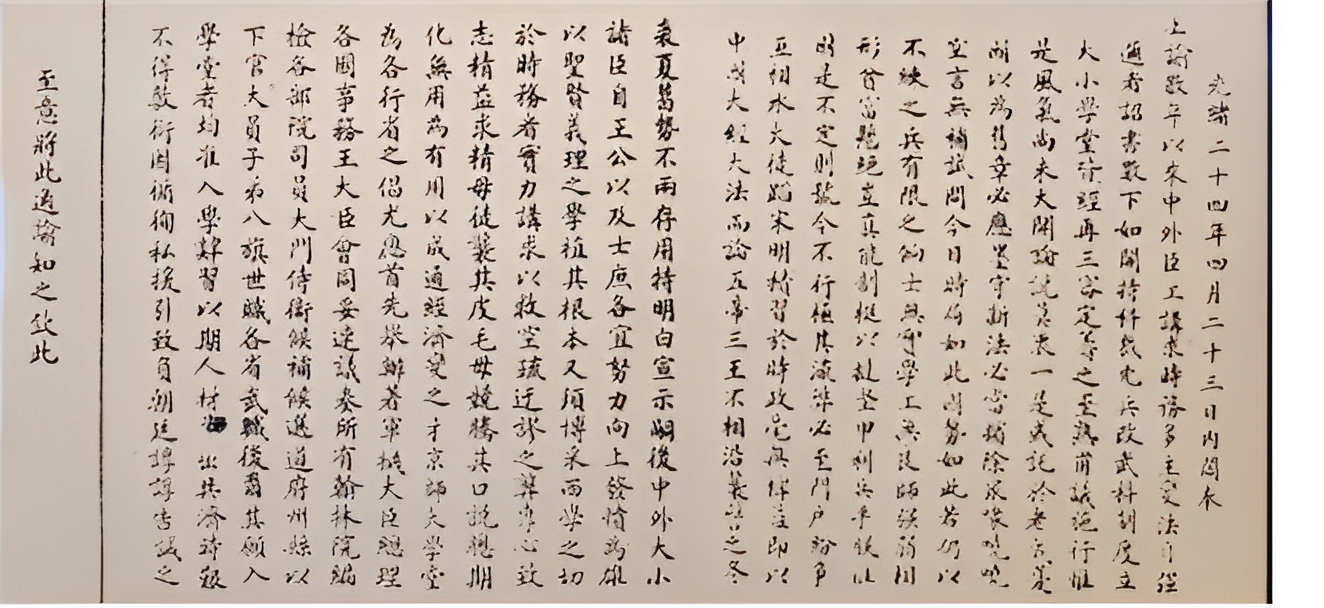 光緒二十四年四月二十三日內閣奉
上諭數年以來中外臣工講求時務多主變法自強
邇者詔書數下如開特科裁冗兵改武科制度立
大小學堂皆經再三審定籌之至熟甫議施行惟
是風氣尚未大開論說莫衷一是或託於老成憂
國以為舊章必應墨守新法必當擯除眾喙嘵嘵
空言無補試問今日時局如此國勢如此若仍以
不練之兵有限之餉士無實學工無良師強弱相
形貧富懸絕豈真能制梃以撻堅甲利兵乎朕惟
國是不定則號令不行極其流弊必至門戶紛爭
互相水火徒蹈宋明積習於時政毫無裨益即以
中國大經大法而論五帝三王不相沿襲譬之冬
裘夏葛勢不兩存用特明白宣示嗣後中外大小
諸臣自王公以及士庶各宜努力向上發憤為雄
以聖賢義理之學植其根本又須博采西學之切
於時務者實力講求以救空疏迂謬之弊專心致
志精益求精毋徒襲其皮毛毋競騰其口說總期
化無用為有用以成通經濟變之才京師大學堂
為各行省之倡尤應首先舉辦著軍機大臣總理
各國事務王大臣會同妥速議奏所有翰林院編
檢各部院司員大門侍衛候補候選道府州縣以
下官大員子弟八旗世職各省武職後裔其願入
學堂者均准入學肄習以期人材出共濟時艱
不得敷衍因循徇私援引致負朝廷諄諄告誡之
至意將此通諭知之欽此